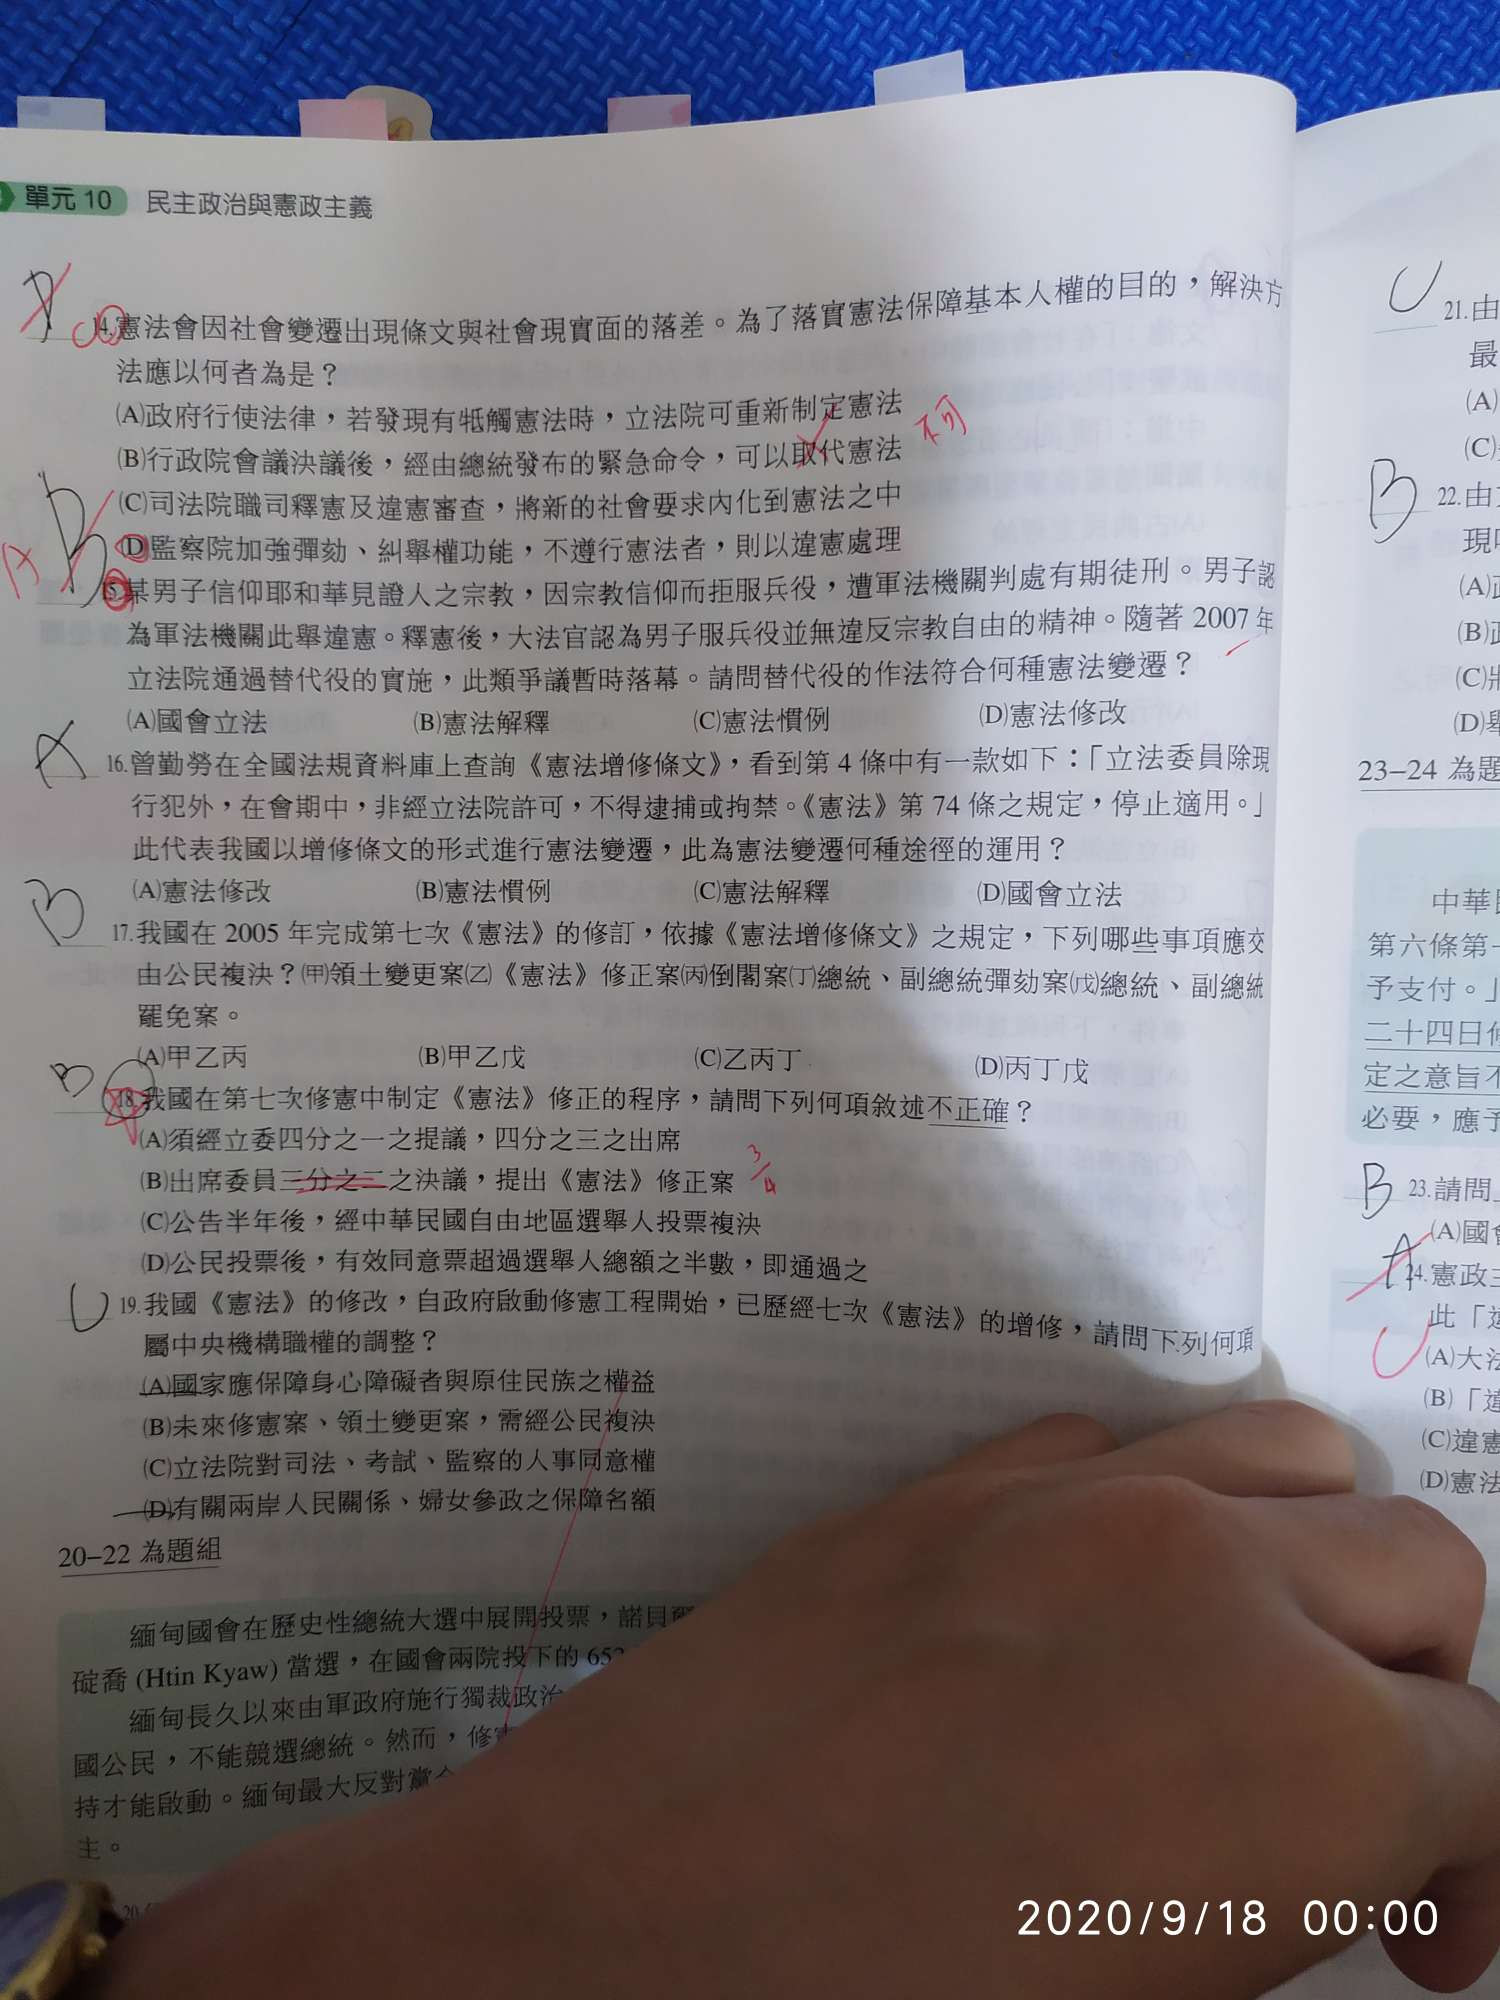 單元 10 民主政治與憲政主義
14.憲法會因社會變遷出現條文與社會現實面的落差。為了落實憲法保障基本人權的目的，解決方
法應以何者為是？
(A)政府行使法律，若發現有牴觸憲法時，立法院可重新制定憲法
不可
(B)行政院會議決議後，經由總統發布的緊急命令，可以取代憲法
(C)司法院職司釋憲及違憲審查，將新的社會要求內化到憲法之中
(D)監察院加強彈劾、糾舉權功能，不遵行憲法者，則以違憲處理
B
A
15.某男子信仰耶和華見證人之宗教，因宗教信仰而拒服兵役，遭軍法機關判處有期徒刑。男子認
為軍法機關此舉違憲。釋憲後，大法官認為男子服兵役並無違反宗教自由的精神。隨著 2007 年
立法院通過替代役的實施，此類爭議暫時落幕。請問替代役的作法符合何種憲法變遷？
(A)國會立法 (B)憲法解釋 (C)憲法慣例 (D)憲法修改
A
16.曾勤勞在全國法規資料庫上查詢《憲法增修條文》，看到第 4 條中有一款如下：「立法委員除現
行犯外，在會期中，非經立法院許可，不得逮捕或拘禁。《憲法》第 74 條之規定，停止適用。」
此代表我國以增修條文的形式進行憲法變遷，此為憲法變遷何種途徑的運用？
(A)憲法修改 (B)憲法慣例 (C)憲法解釋 (D)國會立法
B
17.我國在 2005 年完成第七次《憲法》的修訂，依據《憲法增修條文》之規定，下列哪些事項應交
由公民複決？(甲)領土變更案(乙)《憲法》修正案(丙)倒閣案(丁)總統、副總統彈劾案(戊)總統、副總統
罷免案。
(A)甲乙丙 (B)甲乙戊 (C)乙丙丁 (D)丙丁戊
B
18.我國在第七次修憲中制定《憲法》修正的程序，請問下列何項敘述不正確？
(A)須經立委四分之一之提議，四分之三之出席
(B)出席委員三分之二之決議，提出《憲法》修正案
3/4
(C)公告半年後，經中華民國自由地區選舉人投票複決
(D)公民投票後，有效同意票超過選舉人總額之半數，即通過之
C
19.我國《憲法》的修改，自政府啟動修憲工程開始，已歷經七次《憲法》的增修，請問下列何項
屬中央機構職權的調整？
(A)國家應保障身心障礙者與原住民族之權益
(B)未來修憲案、領土變更案，需經公民複決
(C)立法院對司法、考試、監察的人事同意權
(D)有關兩岸人民關係、婦女參政之保障名額
20–22 為題組
緬甸國會在歷史性總統大選中展開投票，諾貝爾
碇喬 (Htin Kyaw) 當選，在國會兩院投下的 652
緬甸長久以來由軍政府施行獨裁政治
國公民，不能競選總統。然而，修憲
持才能啟動。緬甸最大反對黨
主。
20
C
21.由
最
(A)
(C)
B
22.由
現
(A)
(B)政
(C)
(D)舉
23–24 為題
中華民
第六條第一
予支付。」
二十四日修
定之意旨不
必要，應予
B
23.請問
(A)國會
A
C
24.憲政主
此「違
(A)大法
(B)「違
(C)違憲
(D)憲法
2020/9/18 00:00